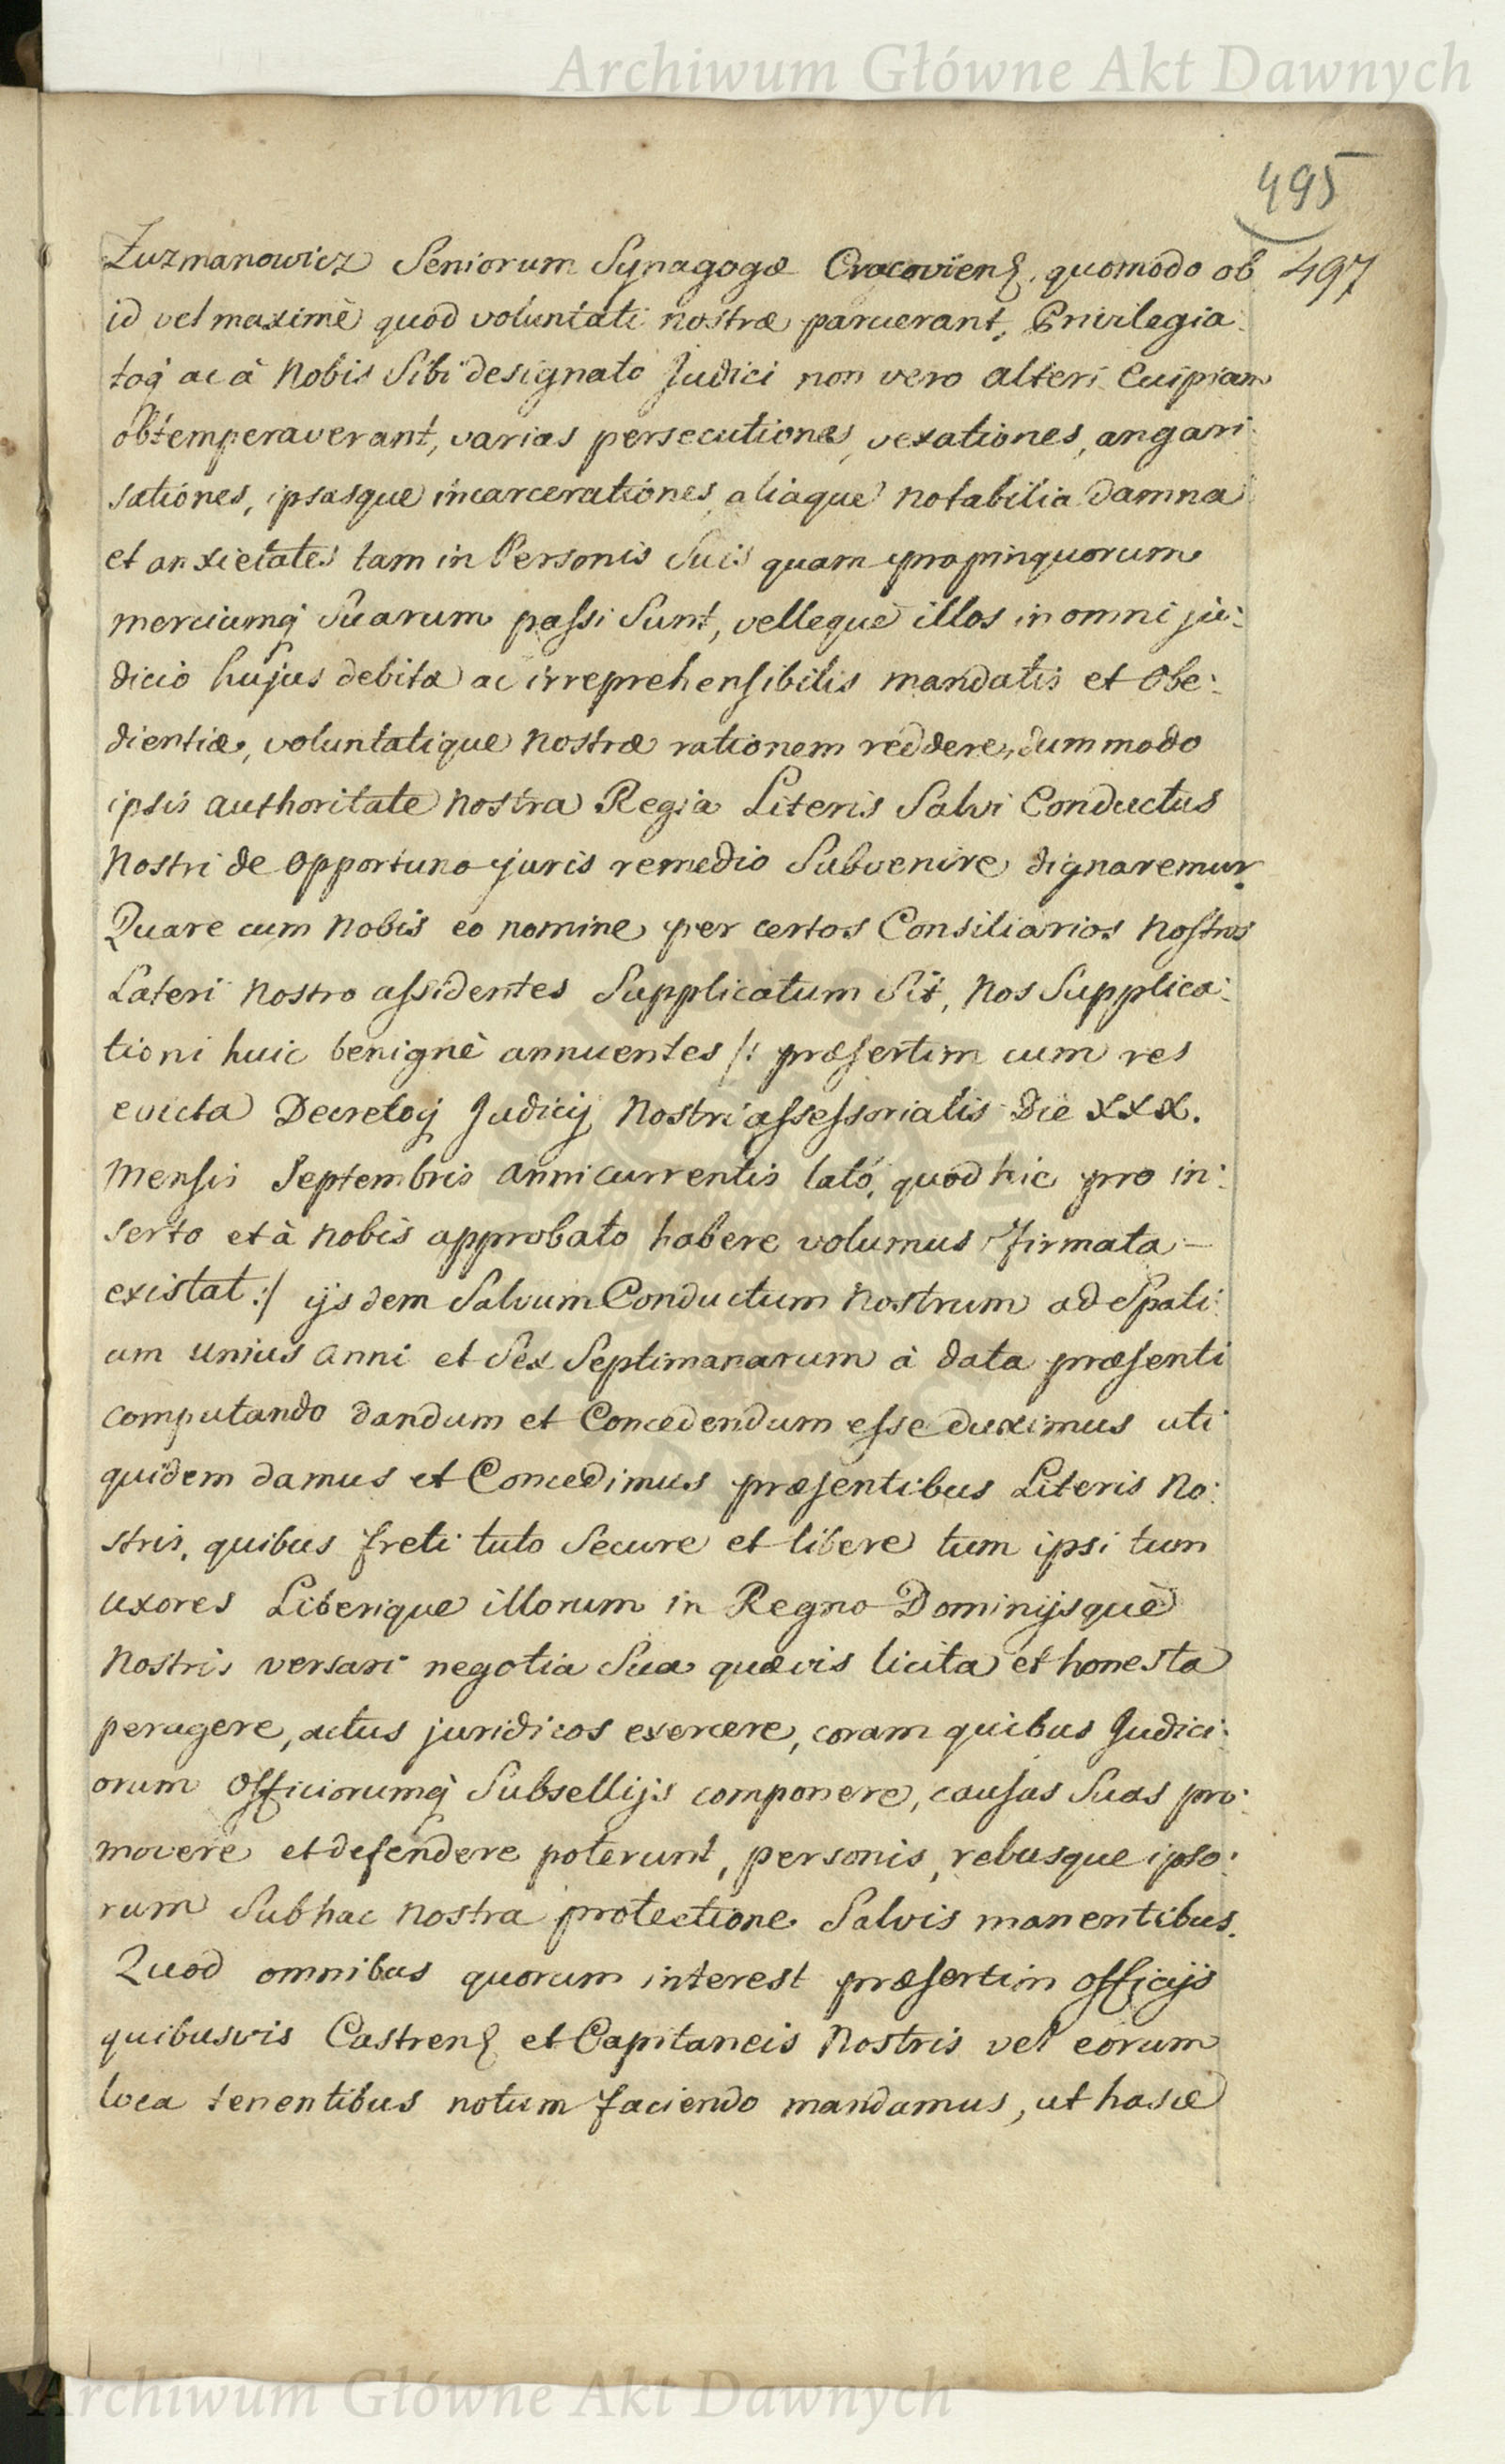 Archiwum Główne Akt Dawnych
495
Zuzmanowicz Seniorum Synagogæ Cracovienẞ. quomodo ob 497
id vel maximè quod voluntati nostræ paruerant, Privilegia:
toq̃ ac à Nobis Sibi designato Judici non vero alteri Cuipiam
obtemperaverant, varias persecutiones, vexationes, angari:
sationes, ipsasque incarcerationes aliaque notabilia damna
et anxietates tam in Personis Suis quam propinquorum
merciumq̃ Suarum passi Sunt, velleque illos in omni ju:
dicio hujus debita ac irreprehensibilis mandatis et Obe:
dientiæ, voluntatique nostræ rationem reddere, dummodo
ipsis authoritate nostra Regia Literis Salvi Conductus
Nostri de opportuno juris remedio Subvenire dignaremur.
Quare cum Nobis eo nomine per certos Consiliarios Nostros
Lateri Nostro assidentes Supplicatum Sit, Nos Supplica:
tioni huic benignè annuentes /: præsertim cum res
evicta Decretoq̃ Judicij Nostri assessorialis Die XXX.
Mensis Septembris Anni currentis lató, quod hic pro in:
serto et à nobis approbato habere volumus Firmata –
existat :/ ijsdem Salvum Conductum Nostrum ad Spati:
um unius Anni et Sex Septimanarum à data præsenti
computando dandum et Concedendum esse duximus uti
quidem damus et Concedimus præsentibus Literis No:
stris, quibus freti tuto Secure et libere tum ipsi tum
uxores Liberique illorum in Regno Dominijsquè
Nostris versari negotia Sua quævis licita et honesta
peragere, actus juridicos exercere, coram quibus Judici:
orum Officiorumq̃ Subsellijs componere, causas Suas pro:
movere et defendere poterunt, personis, rebusque ipso:
rum Sub hac nostra protectione Salvis manentibus.
Quod omnibus quorum interest præsertim officijs
quibusvis Castrenẞ et Capitaneis Nostris vel eorum
loca tenentibus notum faciendo mandamus, ut hasce
Archiwum Główne Akt Dawnych